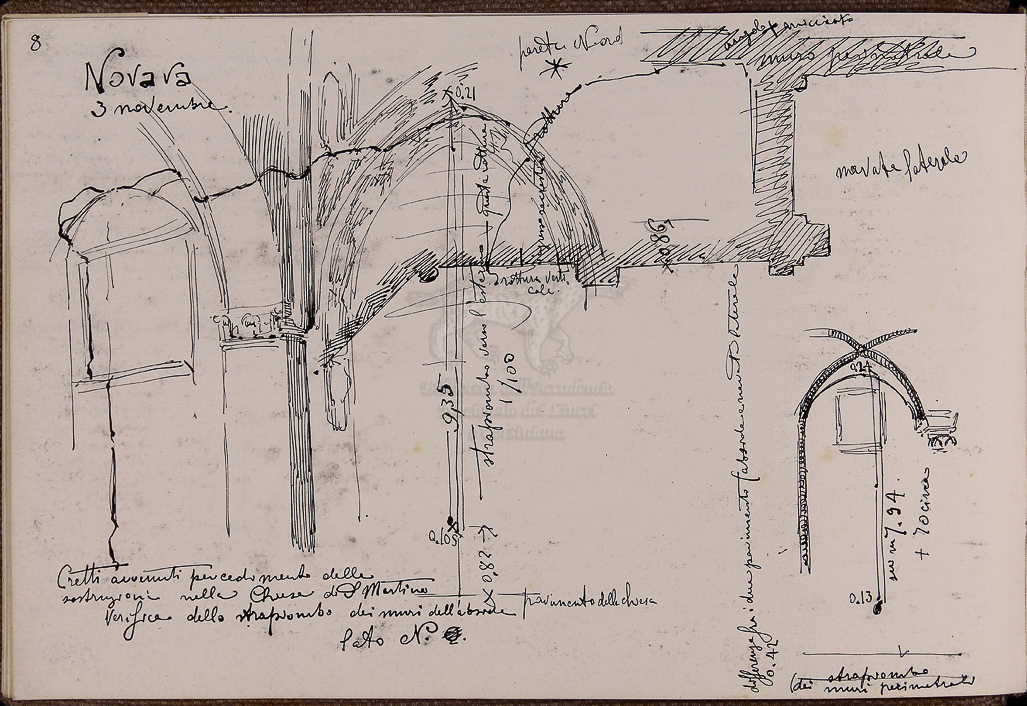 8
Novara
3 novembre
parete Nord
angolo smussato
muro perimetrale
navata laterale
0.21
rottura
questa rottura
0.86
rottura verti
cale
strapiombo verso l'esterno
1/100
9,35
0.105
0.82
pavimento della chiesa
Cretti avvenuti per cedimento delle
sostruzioni nella Chiesa di S Martino
Verifica dello strapiombo dei muri dell'abside
lato N.
differenza fra i due pavimenti (abside e navata) laterale
0.42
0.24
su m 7.94
+ 70 circa
0.13
(dei strapiombo
muri perimetrali